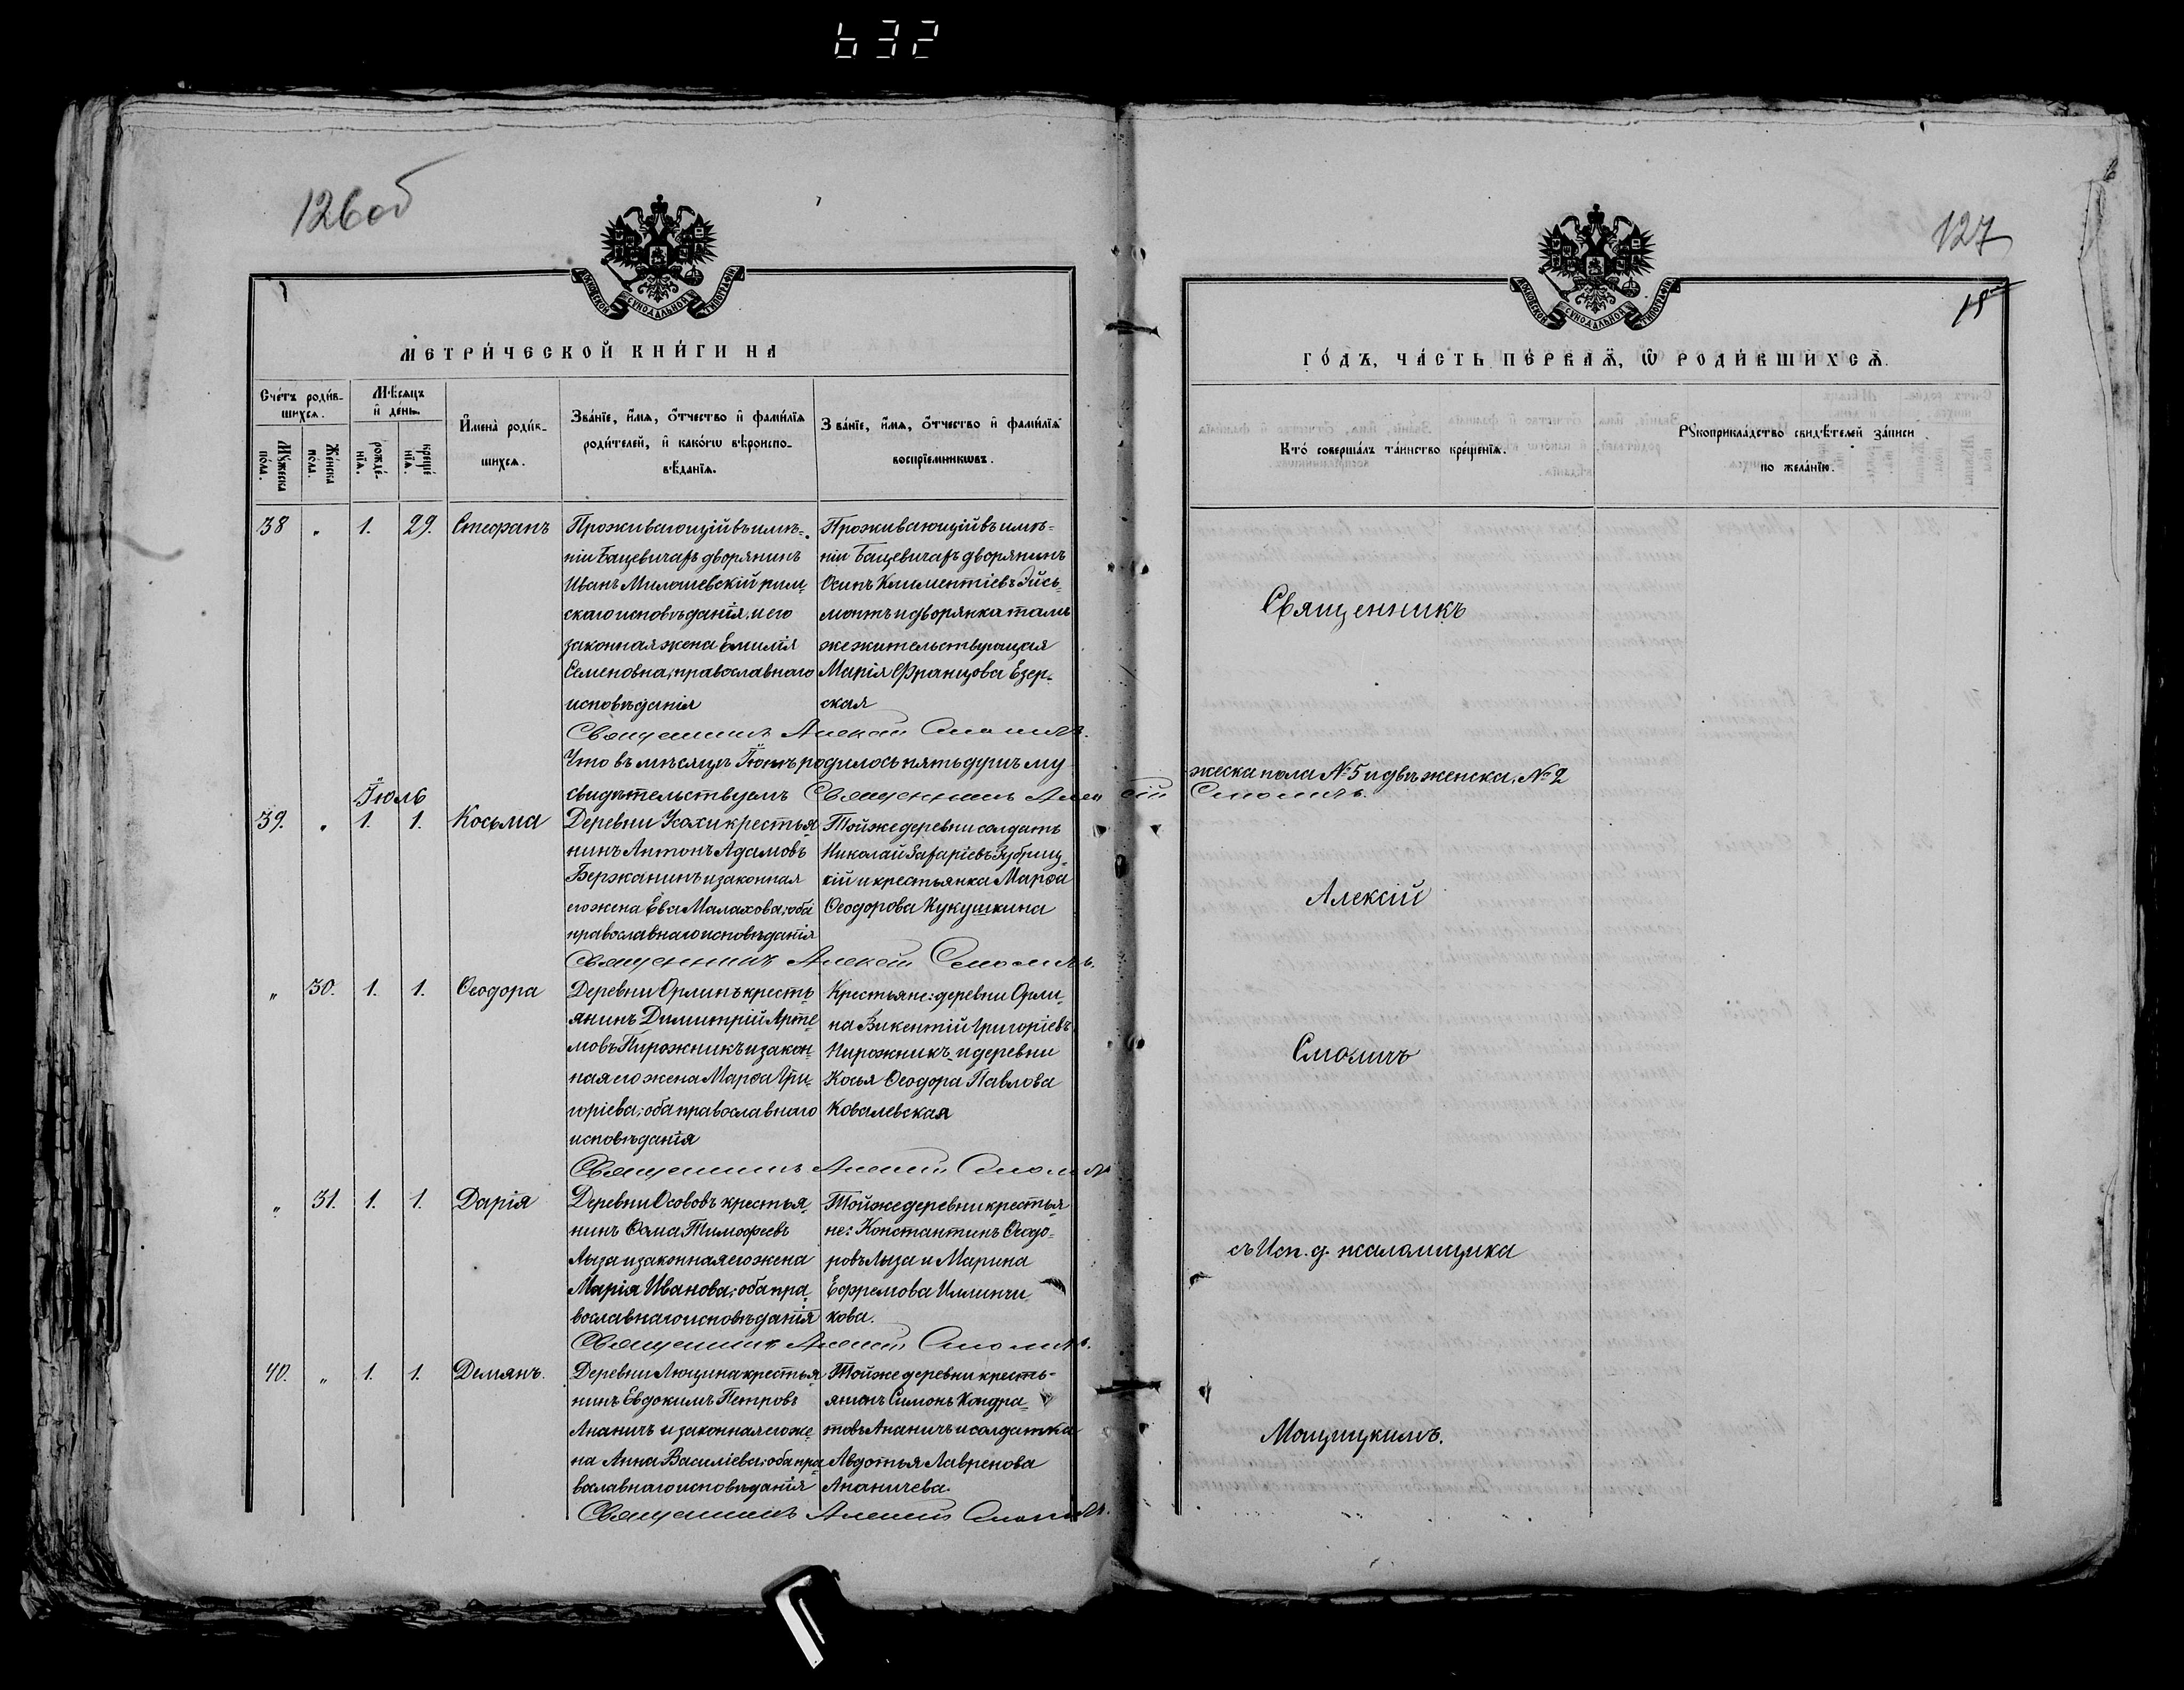 632
126об
МОСКОВСКОЙ СѴНОДАЛЬНОЙ ТИПОГРАФІИ
МЕТРИ́ЧЕСКОЙ КНИ́ГИ НА
Сче́тъ роди́в-
шихсѧ.
Мѣ́сяцъ
и҆ де́нь.
Мꙋ́жеска по́ла.
Же́нска по́ла.
рожде́-
нїѧ.
креще́
нїѧ.
И҆мена̀ роди́в-
шихсѧ.
Зва́нїе, и҆́мѧ, ѻ҆́тчество и҆ фами́лїѧ
роди́телей, и҆ како́гѡ вѣроиспо-
вѣ́данїѧ.
Зва́нїе, и҆́мѧ, ѻ҆́тчество и҆ фами́лїѧ
воспрїе́мникѡвъ.
38 „ 1. 29. Стефанъ
Проживающій въ имѣ-
ніи Бацевичахъ дворянинъ
Иванъ Милошевскій рим-
скаго исповѣданія, и его
законная жена Емилія
Семеновна, православнаго
исповѣданія
Проживающій въ имѣ-
ніи Бацевичахъ дворянинъ
Осипъ Климентіевъ Эйсь-
монтъ и дворянка тамъ
же жительствующая
Марія Францова Езер-
ская
Священникъ Алексій Смоличъ.
Что въ мѣсяцѣ Іюнѣ родилось пять душъ му
свидѣтельствуемъ Священникъ Алексій Смоличъ.
Іюль
39. „ 1. 1. Косьма
Деревни Усохи крестья-
нинъ Антонъ Адамовъ
Бержанинъ и законная
его жена Ева Малахова; оба
православнаго исповѣданія
Тойже деревни солдатъ
Николай Захаріевъ Зубриц-
кій и крестьянка Марѳа
Ѳеодорова Кукушкина
Священникъ Алексій Смоличъ.
„ 30. 1. 1. Ѳеодора
Деревни Орлинъ кресть-
янинъ Димитрій Арте-
мовъ Пирожникъ и закон-
ная его жена Марѳа Гри-
горіева; оба православнаго
исповѣданія
Крестьяне: деревни Орли-
на Викентій Григоріевъ
Пирожникъ и деревни
Косья Ѳеодора Павлова
Ковалевская
Священникъ Алексій Смоличъ
„ 31. 1. 1. Дарія
Деревни Осововъ крестья-
нинъ Ѳома Тимофеевъ
Лыза и законная его жена
Марія Иванова; оба пра-
вославнаго исповѣданія
Тойже деревни крестья-
не: Константинъ Ѳеодо-
ровъ Лыза и Марина
Ефремова Иллинчи-
кова.
Священникъ Алексій Смоличъ.
40. „ 1. 1. Демянъ.
Деревни Лющина крестья-
нинъ Евдокимъ Петровъ
Ананичъ и законная его же-
на Анна Василіева; оба пра-
вославнаго исповѣданія
Тойже деревни кресть-
янинъ Симонъ Кондра-
товъ Ананичъ и солдатка
Авдотья Лавренова
Ананичева.
Священникъ Алексій Смоличъ.
127
МОСКОВСКОЙ СѴНОДАЛЬНОЙ ТИПОГРАФІИ
ГО́ДЪ, ЧА́СТЬ ПЕ́РВАѦ, Ѡ҆ РОДИ́ВШИХСѦ.
Кто̀ соверша́лъ та́инство креще́нїѧ.
Рꙋкоприкла́дство свидѣ́телей за́писи
по жела́нїю.
Священникъ
жеска пола № 5 и двѣ женска, № 2
Алексій
Смоличъ
съ Исп. д. псаломщика
Мощицкимъ.